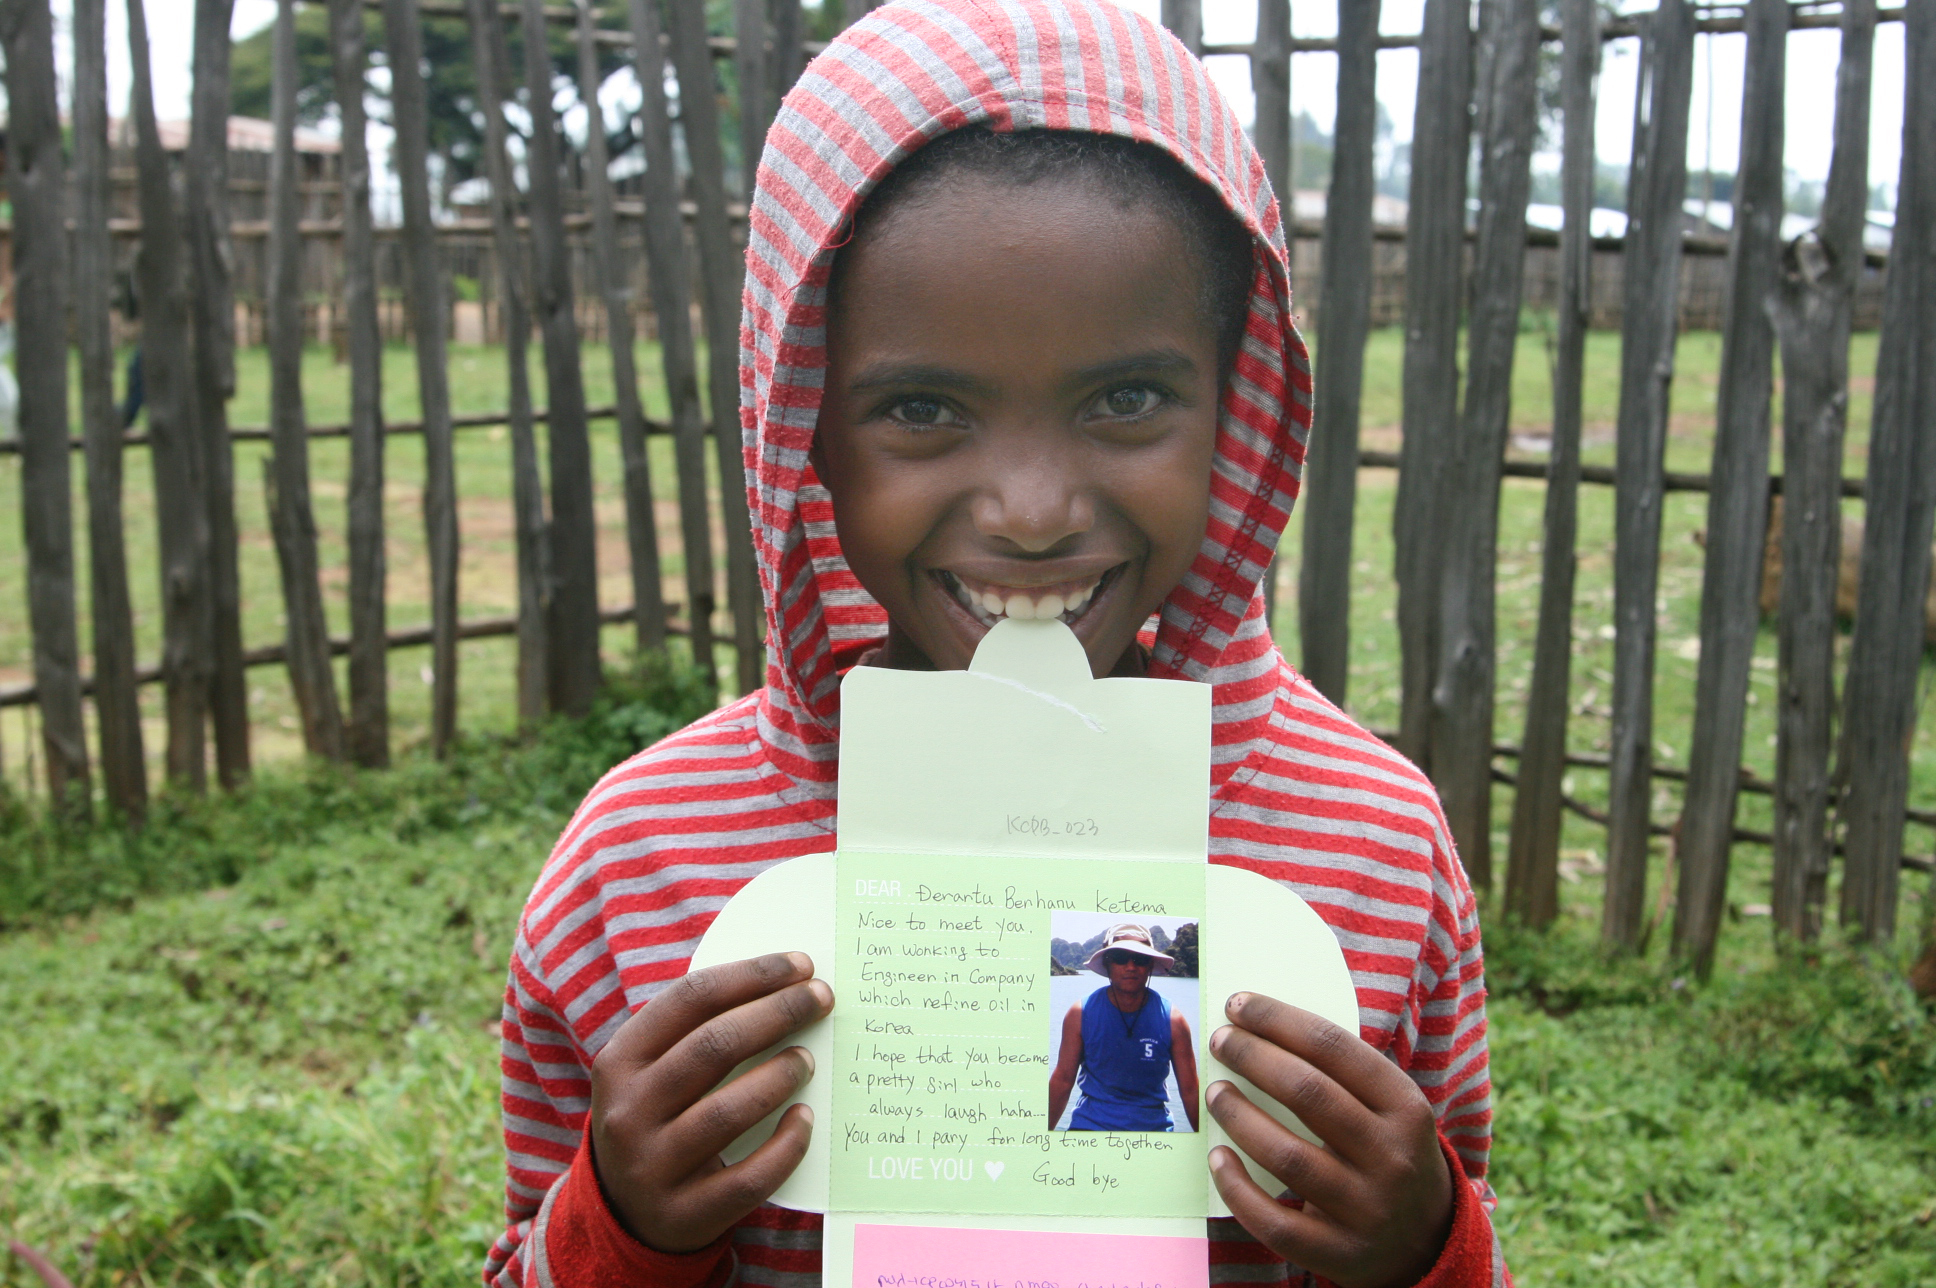 KCDB_023
DEAR Derantu Benhanu Ketema
Nice to meet you.
I am wonking to
Engineen in Company
which refine oil in
Konea
I hope that you become
a pretty girl who
always laugh haha....
You and I pary for long time togethen
LOVE YOU ♥ Good bye
5